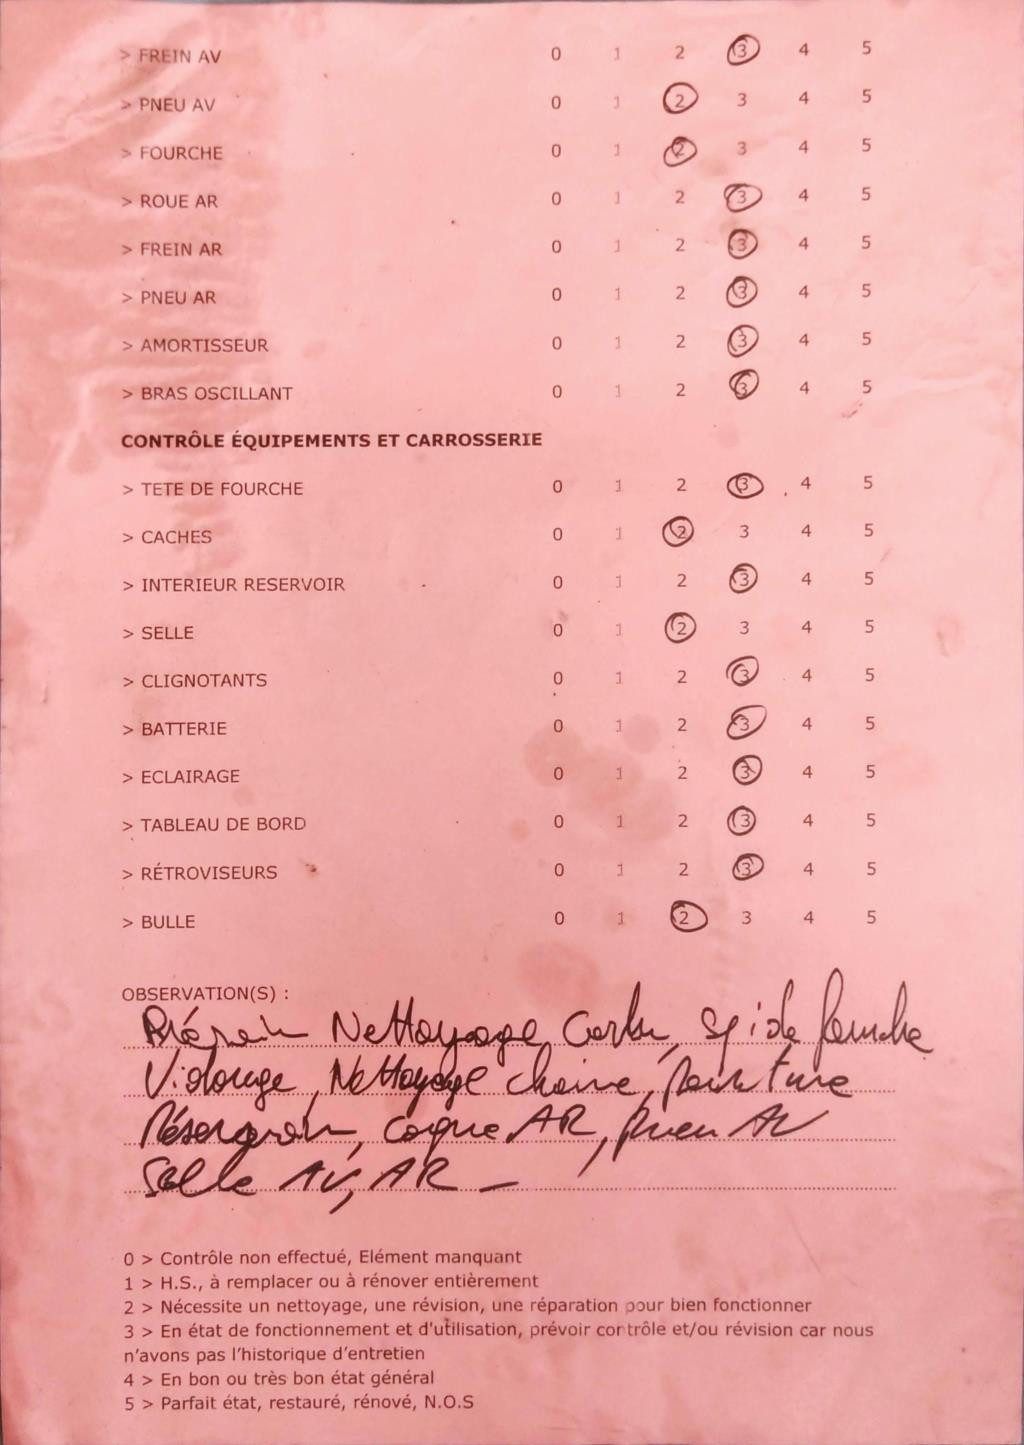 > FREIN AV 0 1 2 3 4 5
> PNEU AV 0 1 2 3 4 5
> FOURCHE 0 1 2 3 4 5
> ROUE AR 0 1 2 3 4 5
> FREIN AR 0 1 2 3 4 5
> PNEU AR 0 1 2 3 4 5
> AMORTISSEUR 0 1 2 3 4 5
> BRAS OSCILLANT 0 1 2 3 4 5
CONTRÔLE ÉQUIPEMENTS ET CARROSSERIE
> TETE DE FOURCHE 0 1 2 3 4 5
> CACHES 0 1 2 3 4 5
> INTERIEUR RESERVOIR 0 1 2 3 4 5
> SELLE 0 1 2 3 4 5
> CLIGNOTANTS 0 1 2 3 4 5
> BATTERIE 0 1 2 3 4 5
> ECLAIRAGE 0 1 2 3 4 5
> TABLEAU DE BORD 0 1 2 3 4 5
> RÉTROVISEURS 0 1 2 3 4 5
> BULLE 0 1 2 3 4 5
OBSERVATION(S) :
Prévoir Nettoyage Carbu, spi de fourche
Vidange, Nettoyage chaine, peinture
Réservoir, coque AR, pneu AV
Selle AV, AR -
0 > Contrôle non effectué, Elément manquant
1 > H.S., à remplacer ou à rénover entièrement
2 > Nécessite un nettoyage, une révision, une réparation pour bien fonctionner
3 > En état de fonctionnement et d'utilisation, prévoir contrôle et/ou révision car nous
n'avons pas l'historique d'entretien
4 > En bon ou très bon état général
5 > Parfait état, restauré, rénové, N.O.S